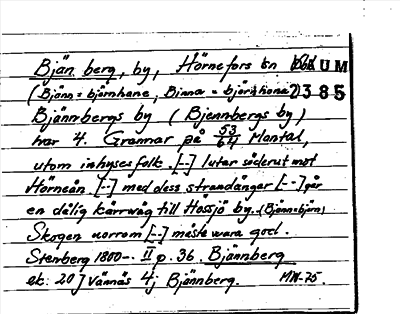 Bjän berg, by, Hörnefors sn DAUM
(Bjänn = björnhane, Binna = björnhona) 2385
Bjännbergs by (Bjennbergs by)
har 4. Grannar på 53/64 Mantal,
utom inhyses folk. [--] lutar söderut mot
Hörneån [--] med dess strandänger [--] går
en dålig kärrwäg till Hössjö by. (Bjänn=björn)
Skogen norrom [--] måste wara god.
Stenberg 1800-. II p. 36. Bjännberg
ek. 20] Vännäs 4j Bjännberg. MM-75.